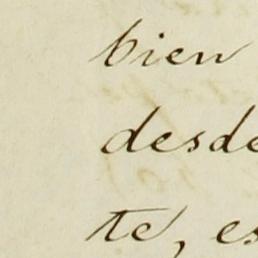 bien
desde
te, es